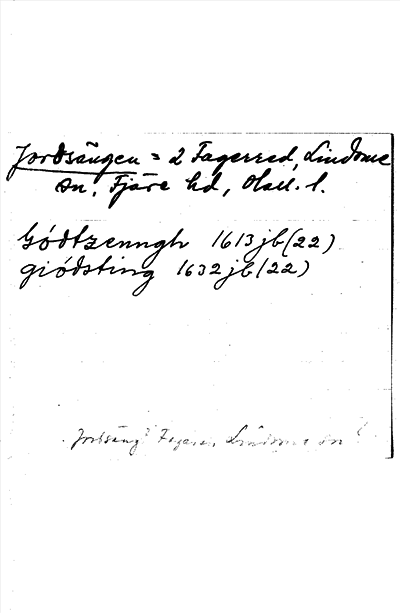 Jordsängen = 2 Fagered, Lindome
sn, Fjäre hd, Hall. l.
Giódtzenngh 1613 jb (22)
giódsting 1632 jb (22)
Jordsäng? Lindome sn